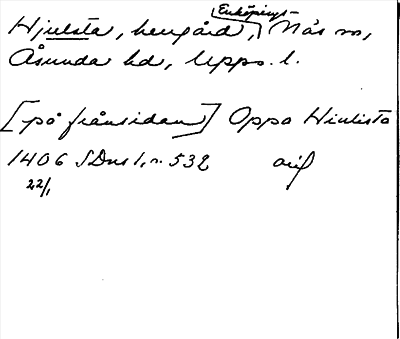 Hjulsta, herrgård, Enköpings-Näs sn,
Åsunda hd, Upps. l.
[på frånsidan] Oppa Hiulista
1406 SDns 1, n. 532 orig
22/1